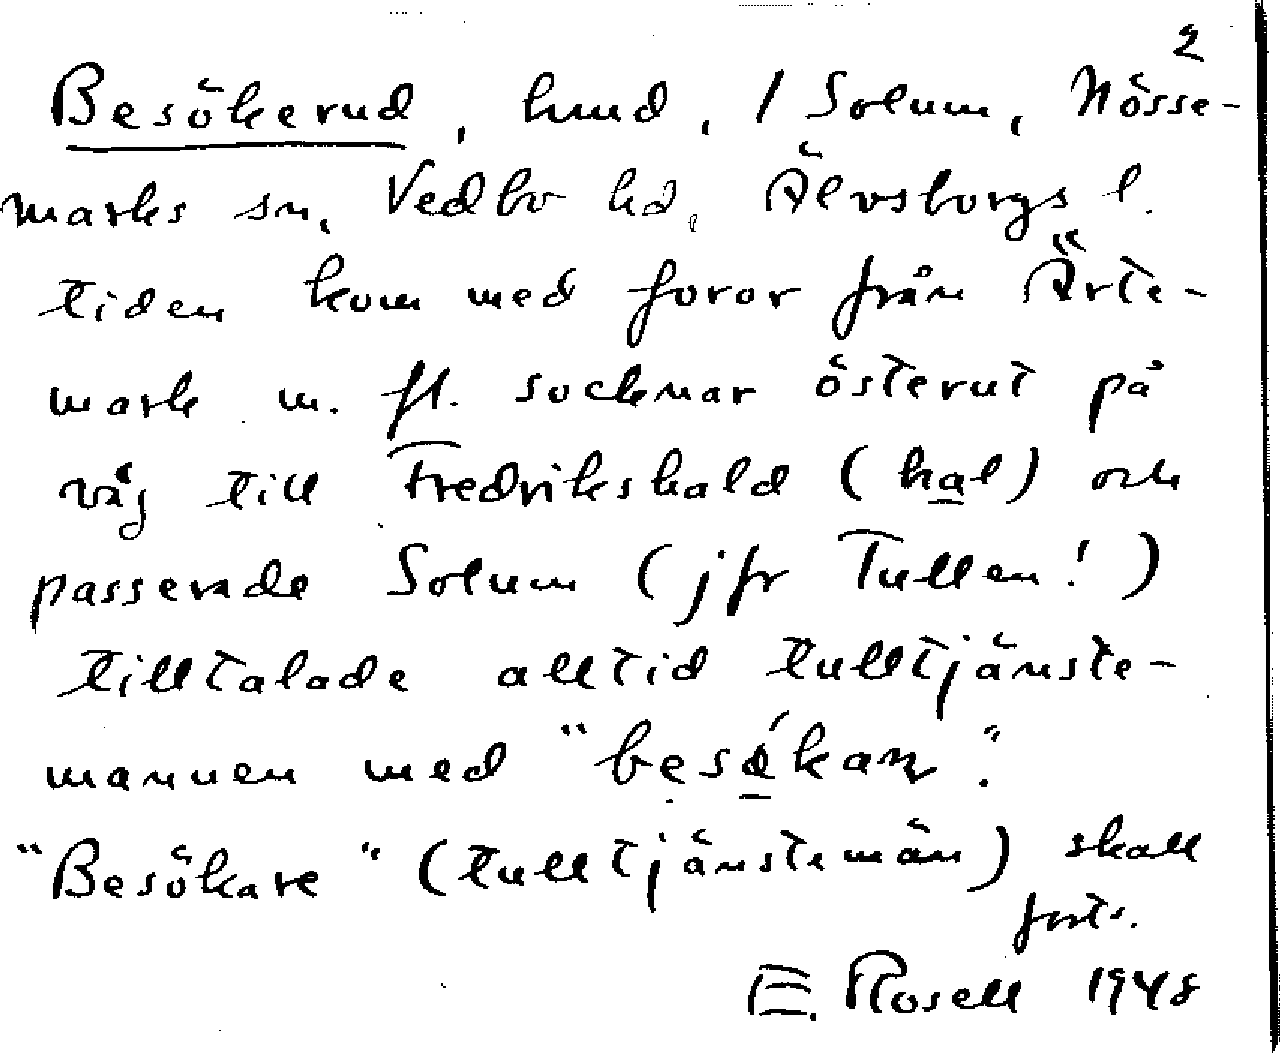 2
Besökerud, hmd, / Solum, Nösse-
marks sn, Vedbo hd, Älvsborgs l.
tiden kom med foror från Ärte-
mark m. fl. socknar österut på
väg till Fredrikshald (hal) och
passerade Solum (jfr Tullen!)
tilltalade alltid tulltjänste-
mannen med "besökan".
"Besökare" (tulltjänstemän) skall
forts.
E. Rosell 1948